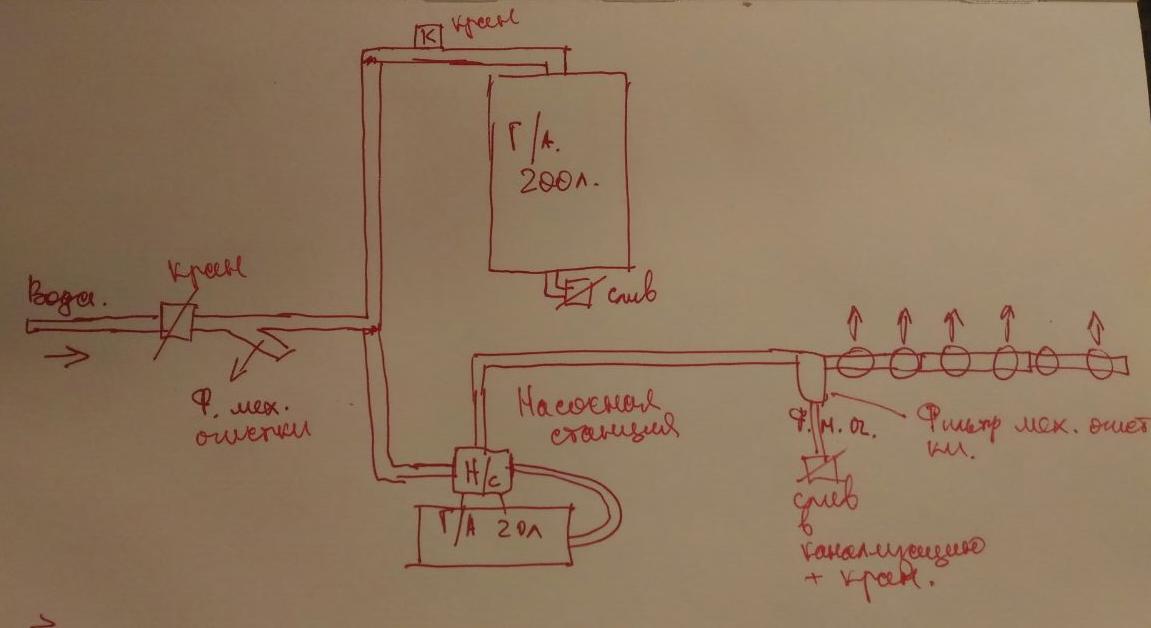 К кран
Г/А.
200л.
слив
Вода.
кран
Ф. мех.
очистки
Насосная
станция
Н/с
Г/А 20л
Ф.м.оч.
Фильтр мех. очист
ки.
слив
в
канализацию
+ кран.